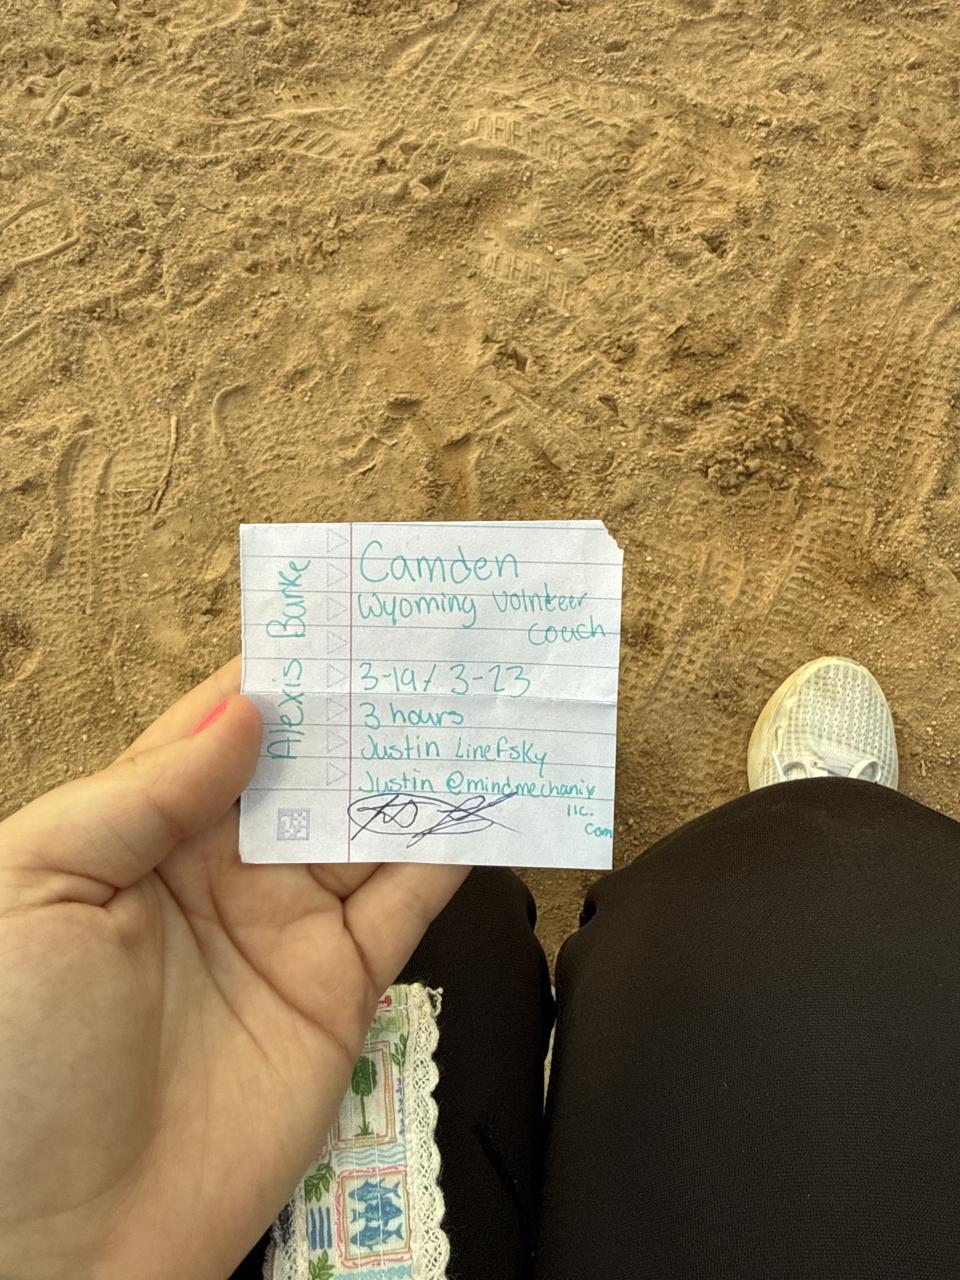 Camden
Wyoming Volnteer
Coach
3-19/3-23
3 hours
Justin Linefsky
Justin@mindmechanix
llc.
com
Alexis Burke